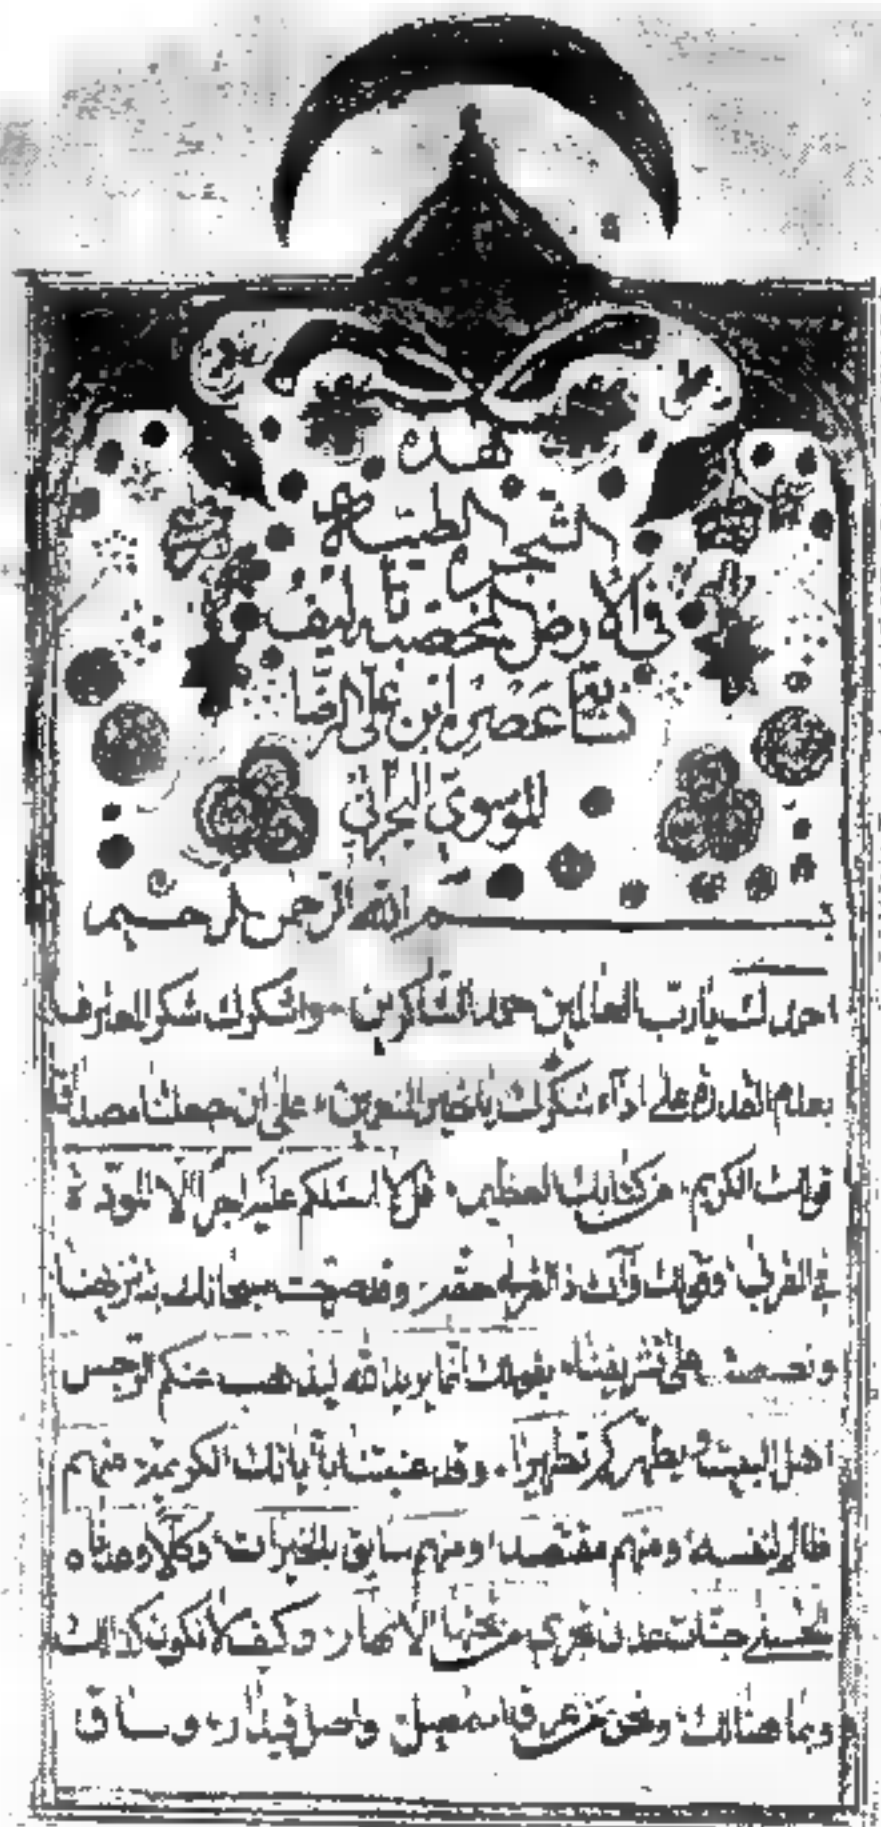 هذه
الشجرة الطيبة
في الأرض المخصبة تأليف
نسابة عصره ابن علي الرضا
الموسوي البحراني
بسم الله الرحمن الرحيم
احمدك يا رب العالمين حمد الشاكرين، واشكرك شكر المعترف
بعدم القدرة على اداء شكرك يا خير المنعمين، على ان جعلتنا مصداق
قولك الكريم، من كتابك العظيم، قل لا اسئلكم عليه اجرا الا المودة
في القربى، وقولك وآت ذا القربى حقه، وقد صحت سبحانك
ونصصت على تشريفنا، بقولك انما يريد الله ليذهب عنكم الرجس
اهل البيت ويطهركم تطهيرا، وقد بآياتك الكريمة، فمنهم
ظالم لنفسه، ومنهم مقتصد، ومنهم سابق بالخيرات، وكلا
الحسنى جنات عدن تجري من تحتها الانهار، وكيف لا نكون كذلك
ونحن من عرق اسمعيل، واصل قيذار، وساق